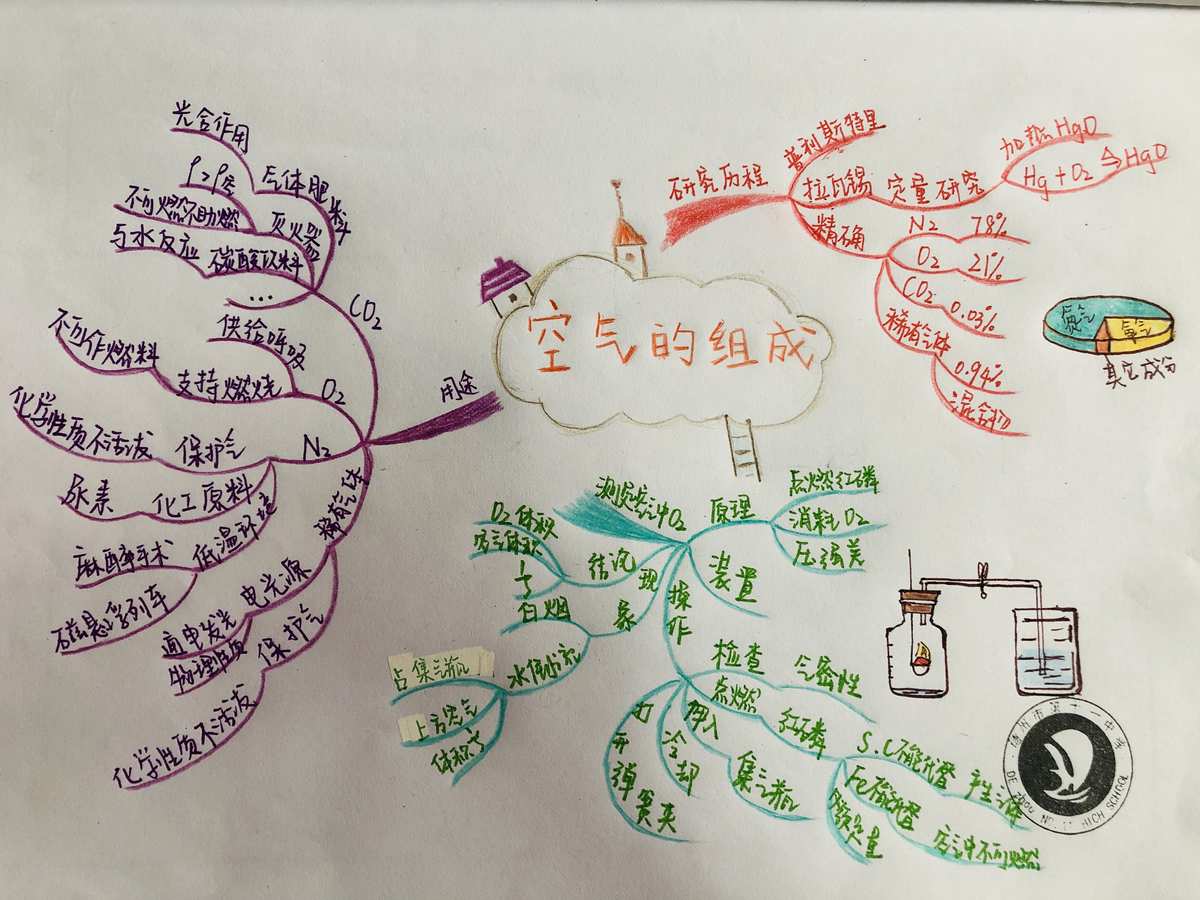 空气的组成
研究历程
普利斯特里
拉瓦锡
定量研究
加热HgO
Hg+O2⇌HgO
精确
N2
78%
O2
21%
CO2
0.03%
稀有气体
0.94%
混合物
氮气
氧气
其它成分
用途
CO2
气体肥料
光合作用
灭火器
ρ>ρ空
不可燃不助燃
碳酸饮料
与水反应
...
O2
供给呼吸
支持燃烧
不可作燃料
N2
保护气
化学性质不活泼
化工原料
尿素
低温环境
麻醉手术
磁悬浮列车
稀有气体
电光源
通电发光
物理性质
保护气
化学性质不活泼
测定空气中O2
原理
点燃红磷
消耗O2
压强差
装置
操作
检查
气密性
点燃
红磷
S.C不能代替
产生气体
Fe不能代替
空气中不可燃
伸入
集气瓶
冷却
打开弹簧夹
现象
白烟
水倒流
占集气瓶
上方空气
体积
结论
O2体积
空气体积
德州市第十一中学
DE ZHOU NO.11 HIGH SCHOOL